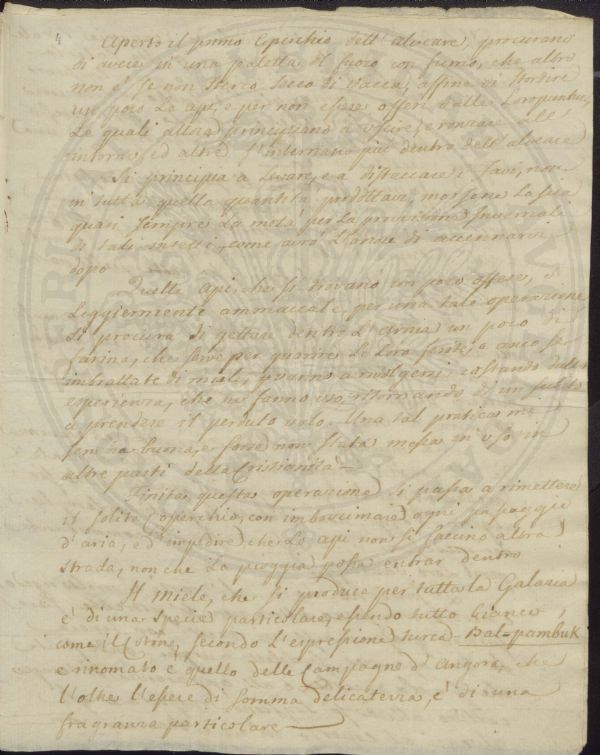 4
Aperto il primo Coperchio dell'alveare, procurano
di avere in una paletta il fuoco con fumo, che altro
non è se non sterco secco di vacca, affine di stordire
un poco le api, e per non essere offesi dalle loro punture,
le quali allora principiano a uscire, e ronzare all'
intorno, ed altre s'internano più dentro dell'alveare
Si principia a levare, e a distaccare i favi, non
in tutta quella quantità prodottavi, ma sene lascia
quasi sempre la metà per la provisione Invernale
di tali insetti, come avrò l'onore di accennarvi
dopo
Quelle api, che si trovano un poco offese, o
leggiermente ammaccate per una tale operazione
si procura di gettare dentro l'Arnia un poco di
farina, che serve per guarire le loro ferite, e anco se
imbrattate di miele, vanno a rivolgersi costando dall'
esperienza, che ne fanno uso, ritornando di un subito
a prendere il perduto volo. Una tal pratica mi
sembra buona, e forse non stata messa in uso in
altre parti della Cristianità —
Finita questa operazione si passa a rimettere
il solito Coperchio, con imbovinare ogni passaggio
d'aria, ed impedire che le api non si faccino altra
strada, non che la pioggia possa entrar dentro
Il miele, che si produce per tutta la Galazia
è di una specie particolare, essendo tutto bianco
come il Cotone, secondo l'espressione turca - Bal-pambuk
e rinomato è quello delle Campagne d'Angora, che
oltre l'essere di somma delicatezza, è di una
fragranza particolare —